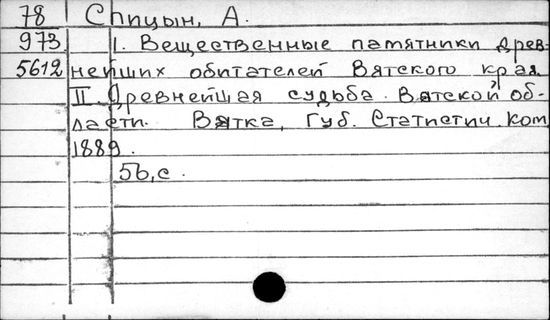 78 Спицын, А.
973 I. Вещественные памятники древ-
5612 нейших обитателей Вятского края
II Древнейшая судьба Вятской об-
ласти. Вятка, Губ. Статистич. Ком
1889.
56, с.